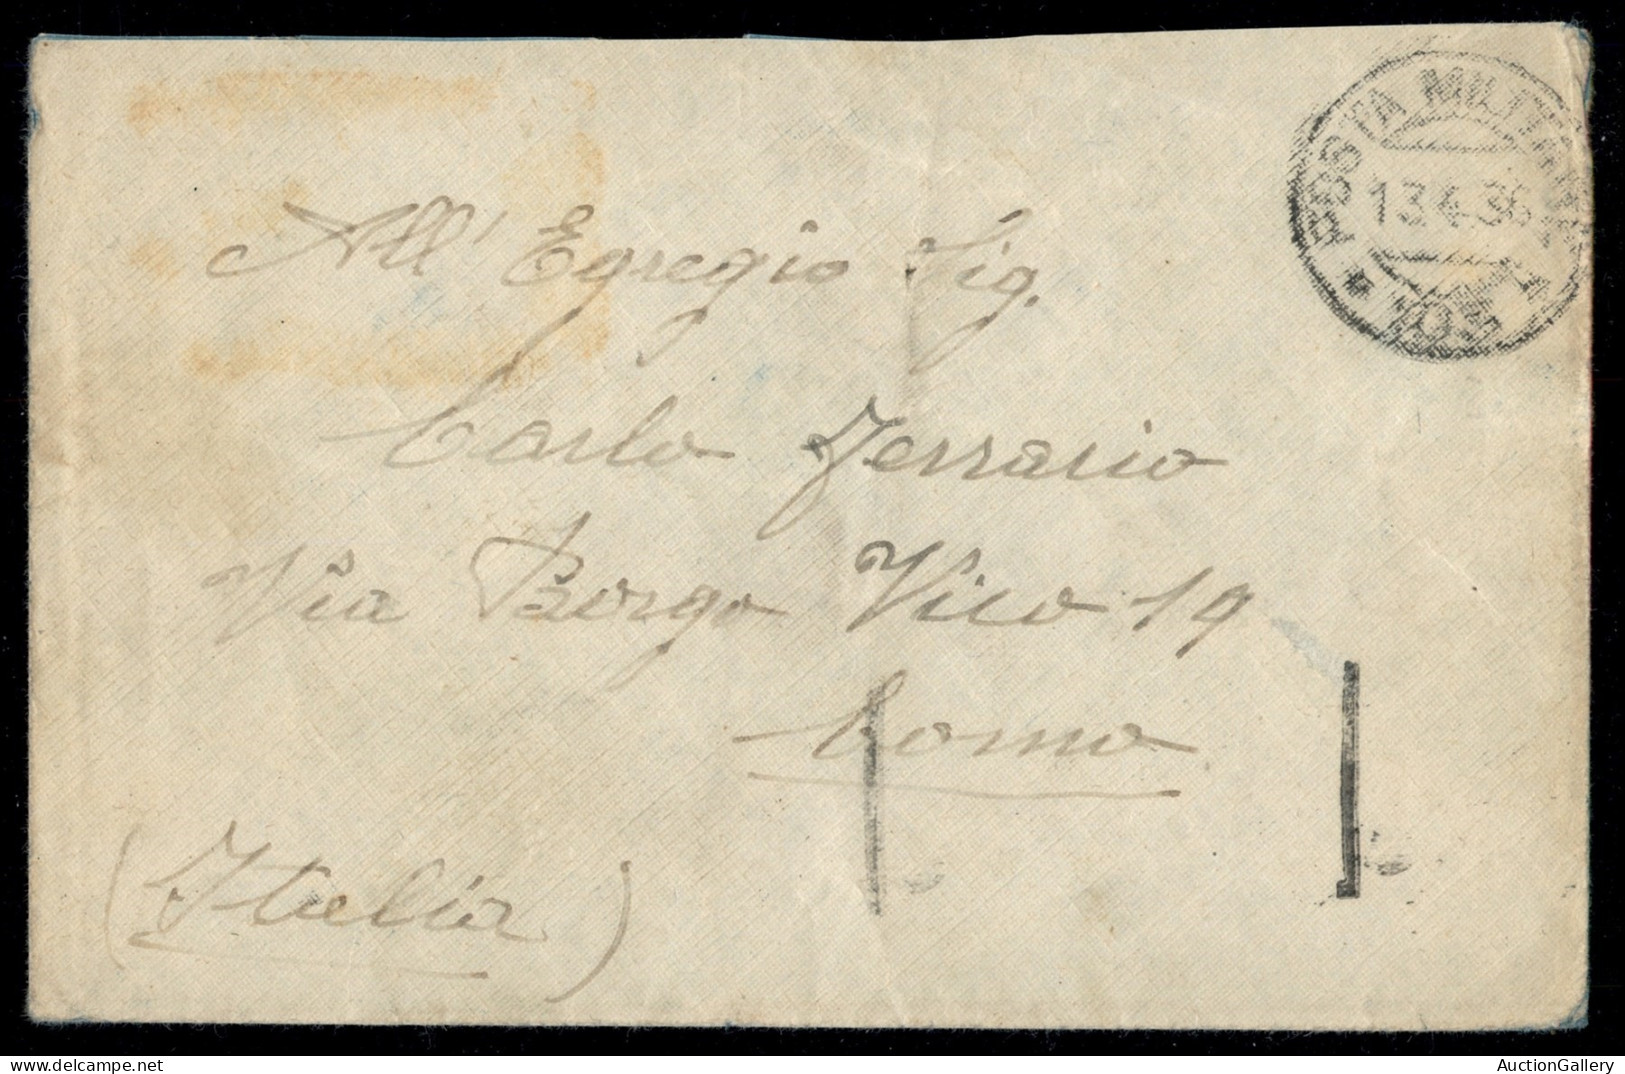 POSTA MILITARE
13.4.36
All' Egregio Sig.
Carlo Ferrario
Via Borgo Vico 19
Como
(Italia)
AuctionGallery